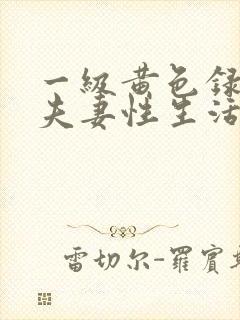 一级黄色録
夫妻性生活
雷切尔-羅賓